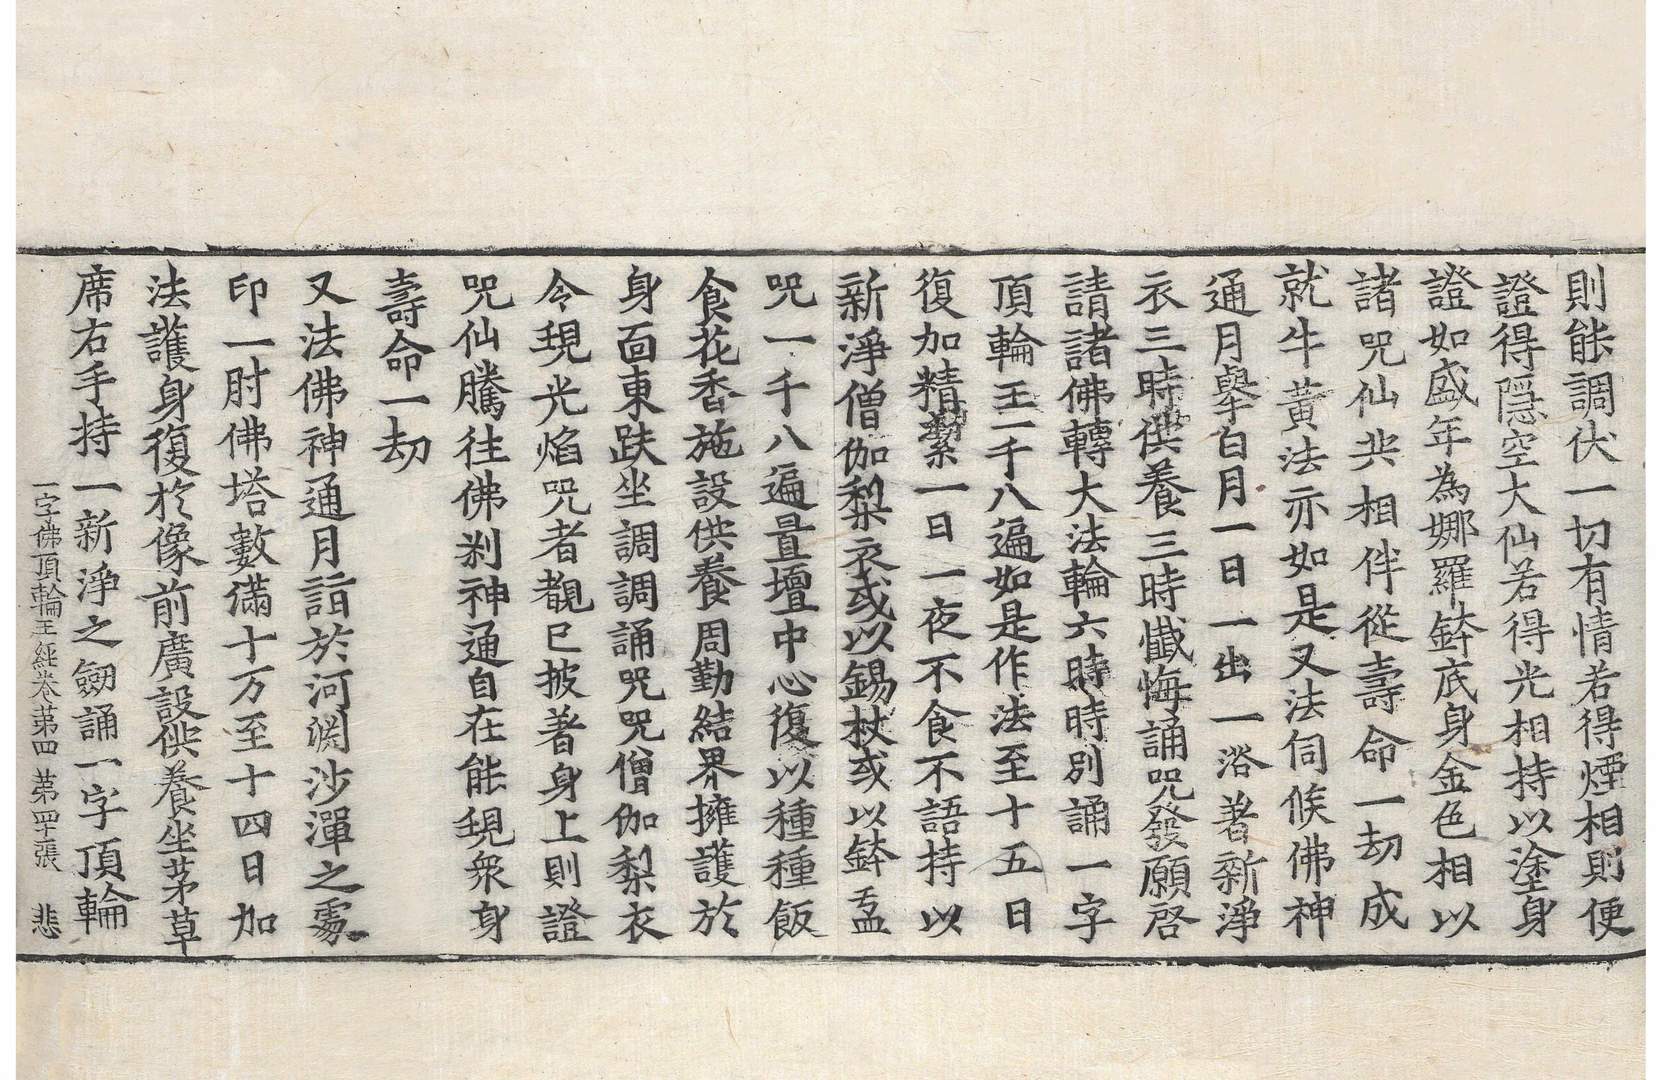 則能調伏一切有情若得煙相則便
證得隱空大仙若得光相持以塗身
證如盛年為娜羅鉢底身金色相以
諸咒仙共相伴從壽命一劫成
就牛黃法亦如是又法伺候佛神
通月舉白月一日一出一浴著新淨
衣三時供養三時懺悔誦咒發願啓
請諸佛轉大法輪六時時別誦一字
頂輪王一千八遍如是作法至十五日
復加精潔一日一夜不食不語持以
新淨僧伽梨衣或以錫杖或以鉢盂
咒一千八遍置壇中心復以種種飯
食花香施設供養周勤結界擁護於
身面東趺坐調調誦咒咒僧伽梨衣
令現光焰咒者覩已披著身上則證
咒仙騰往佛剎神通自在能現衆身
壽命一劫
又法佛神通月詣於河渕沙潬之處
印一肘佛塔數滿十万至十四日加
法護身復於像前廣設供養坐茅草
席右手持一新淨之劒誦一字頂輪
一字佛頂輪王經卷苐四 苐四十張 悲